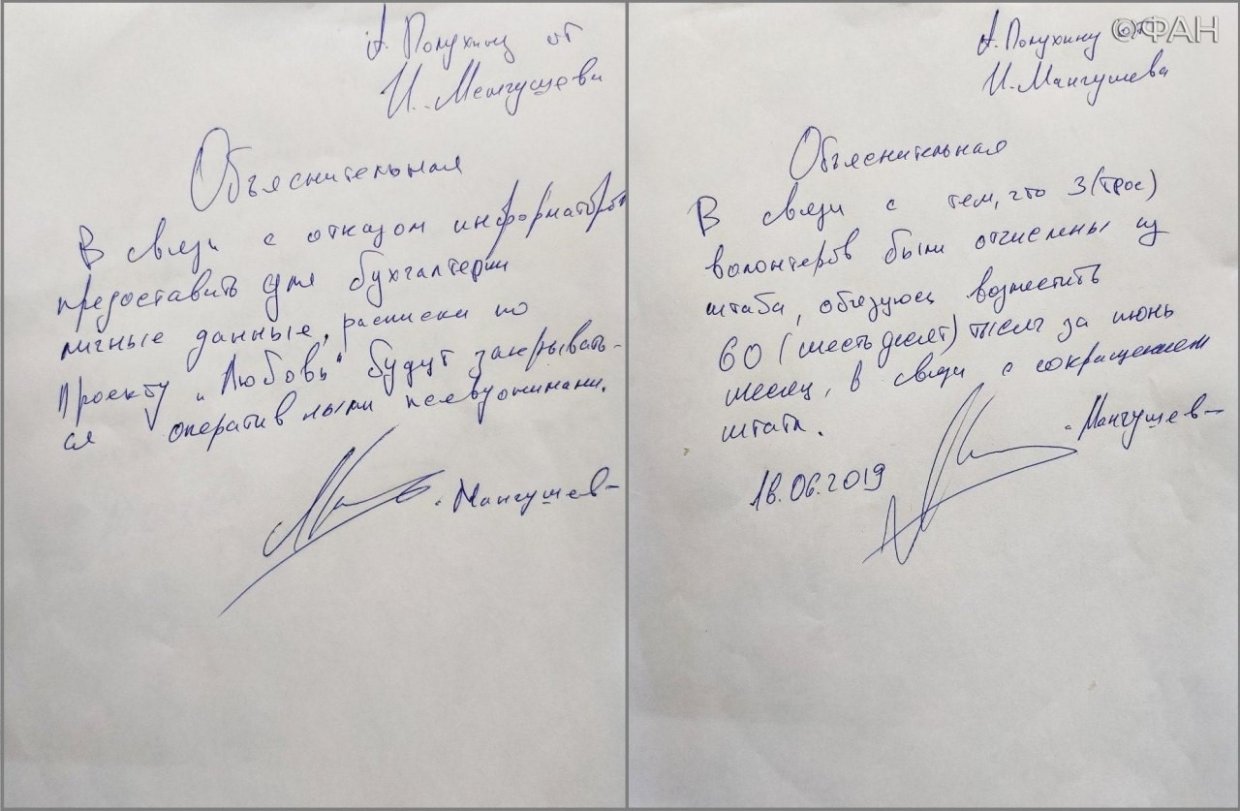 А. Полухину от
И. Мангушева
Объяснительная
В связи с отказом информаторов
предоставить для бухгалтерии
личные данные, расписки по
Проекту "Любовь" будут закрывать-
ся оперативными псевдонимами.
Мангушев
©ФАН
А. Полухину от
И. Мангушева
Объяснительная
В связи с тем, что 3 (трое)
волонтеров были отчислены из
штаба, обязуюсь возместить
60 (шестьдесят) тысяч за июнь
месяц, в связи с сокращением
штата.
Мангушев
18.06.2019